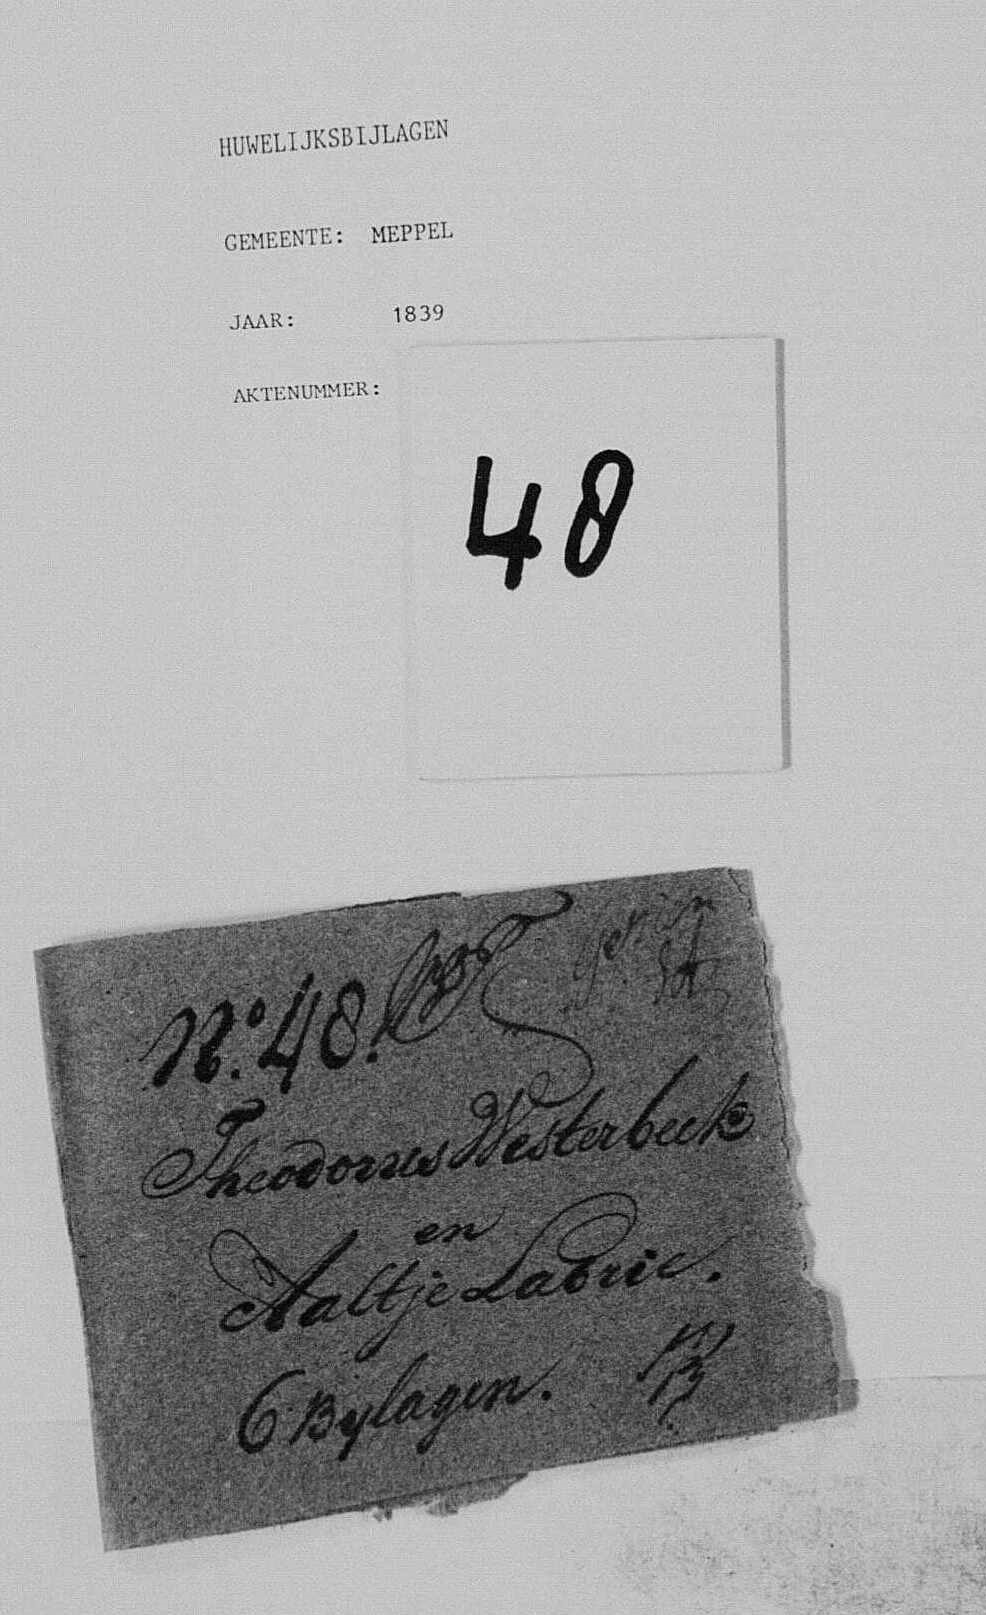 HUWELIJKSBIJLAGEN
GEMEENTE: MEPPEL
JAAR: 1839
AKTENUMMER:
48
No. 48.
Theodorus Westerbeek
en
Aaltje Labrie.
6 Bylagen.